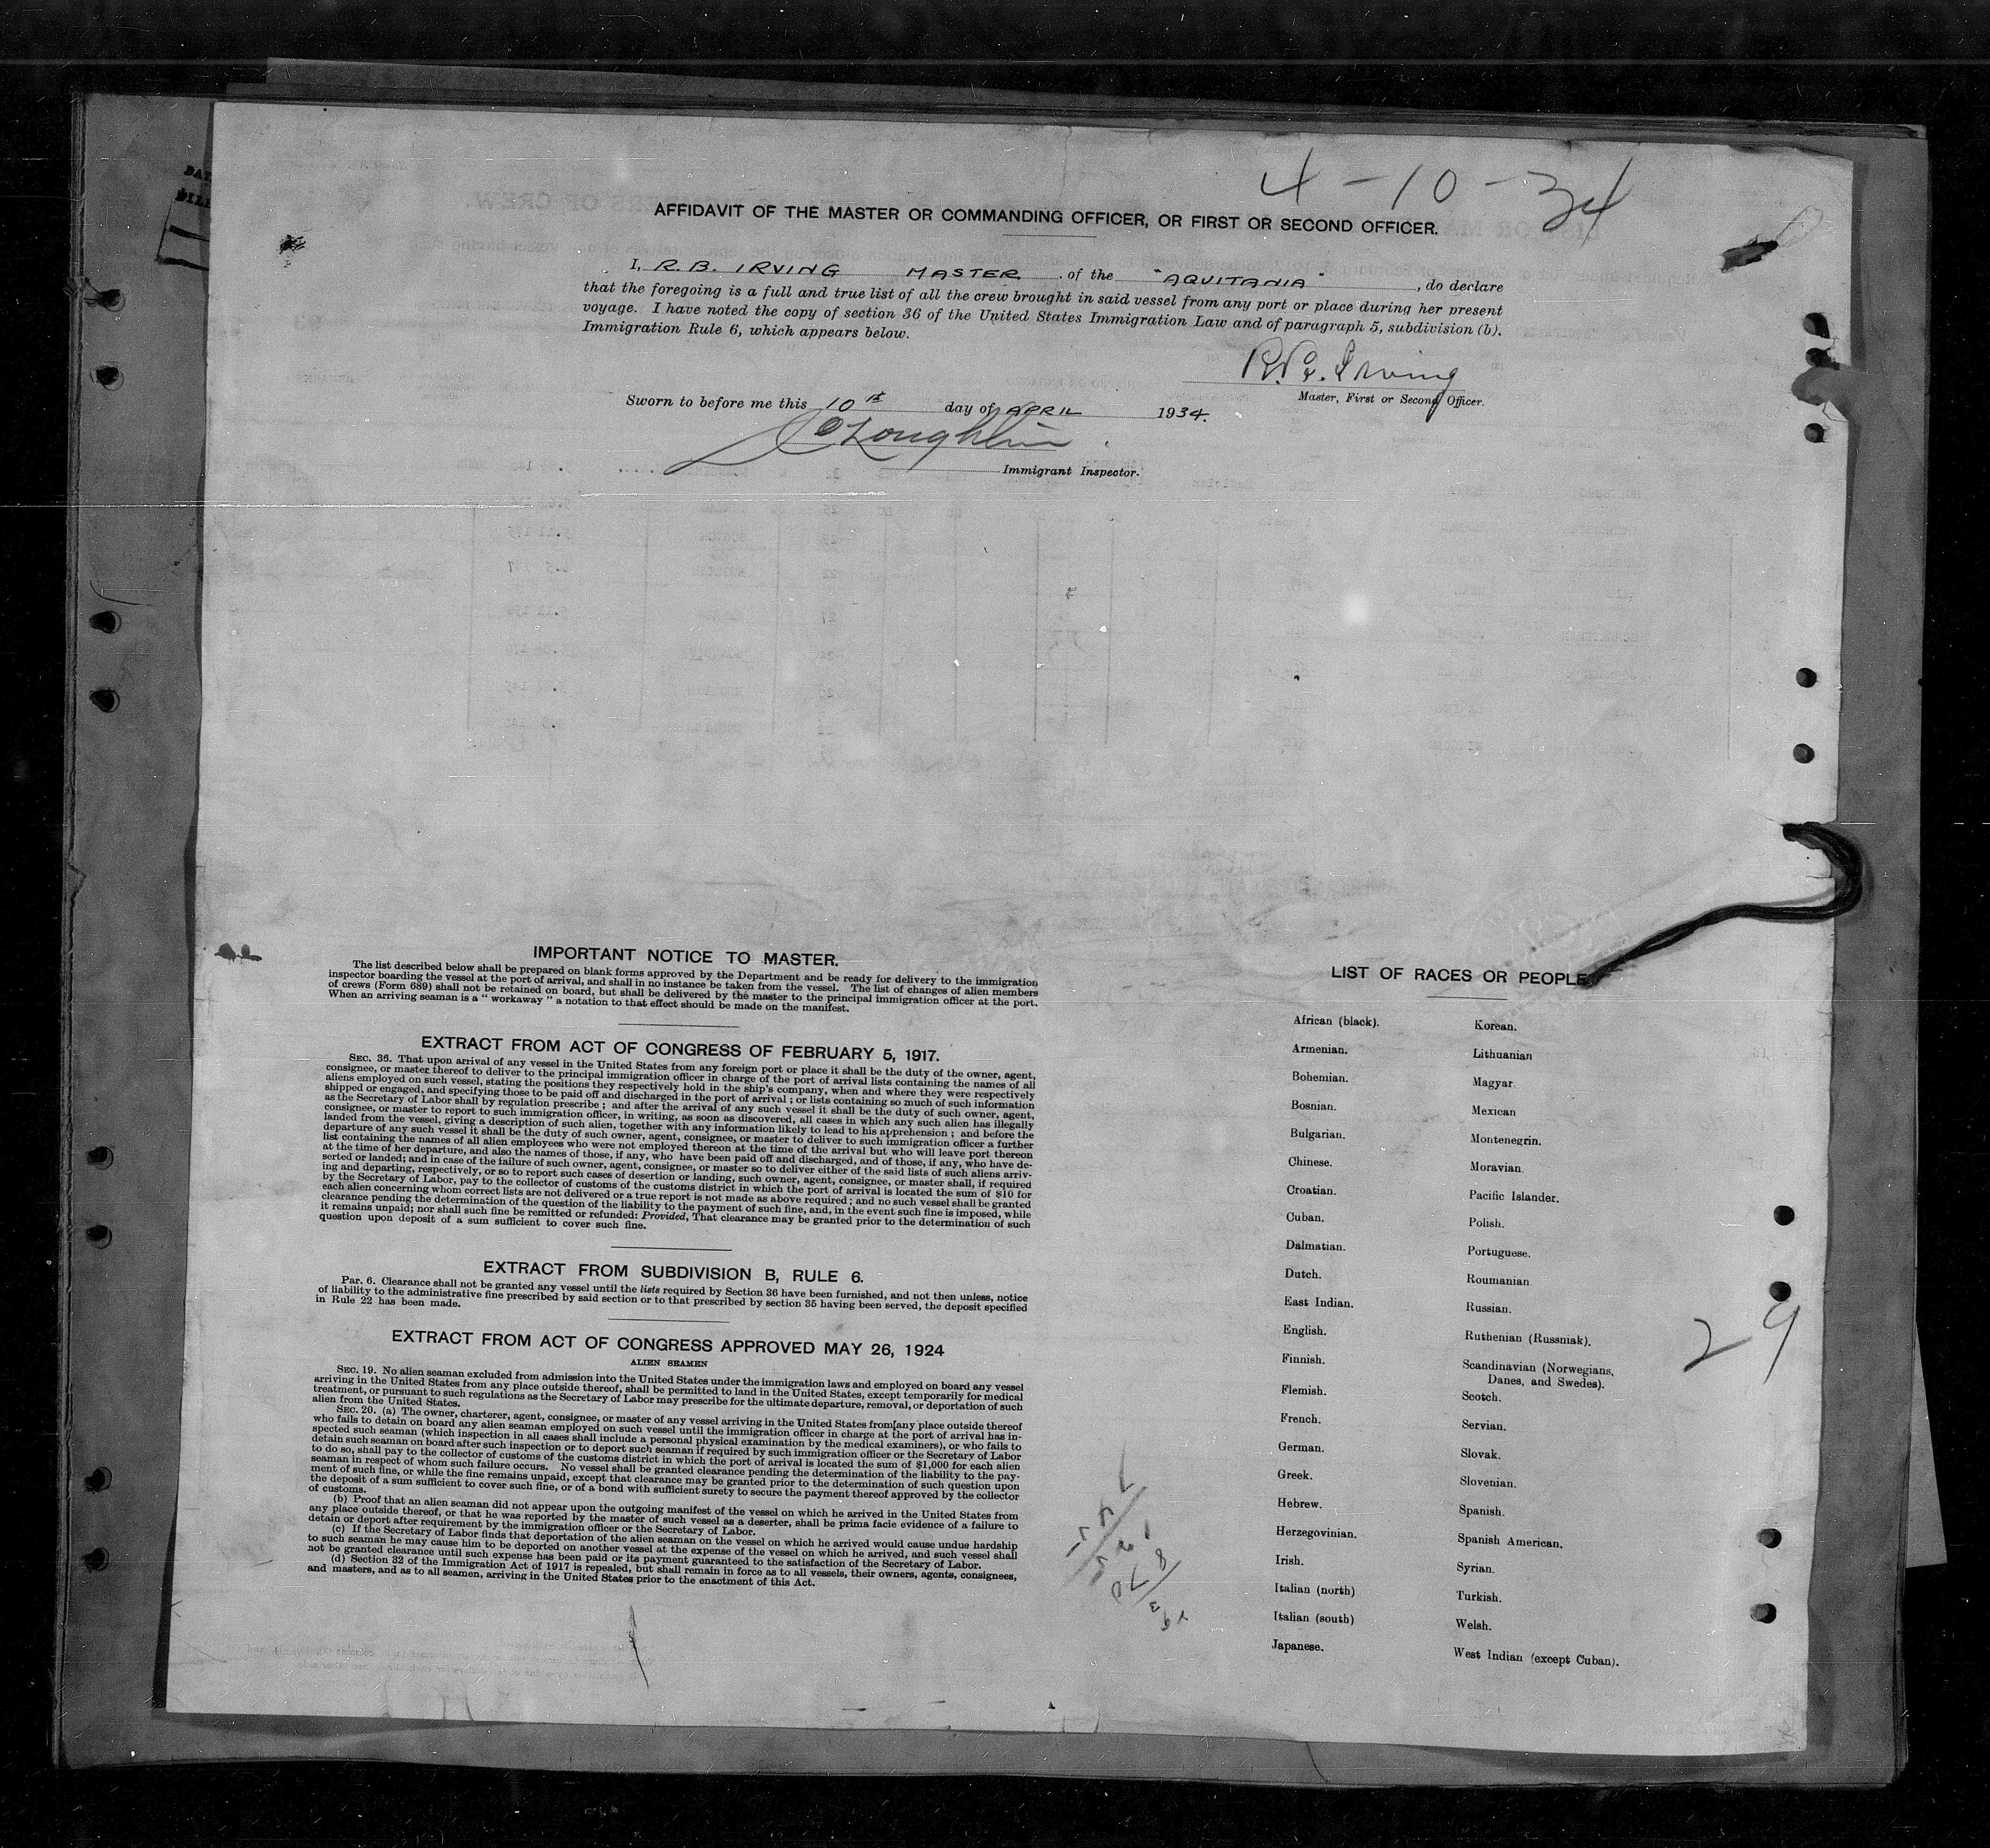 4-10-34
AFFIDAVIT OF THE MASTER OR COMMANDING OFFICER, OR FIRST OR SECOND OFFICER.
I, R.B. IRVING MASTER of the "AQUITANIA", do declare
that the foregoing is a full and true list of all the crew brought in said vessel from any port or place during her present
voyage. I have noted the copy of section 36 of the United States Immigration Law and of paragraph 5, subdivision (b).
Immigration Rule 6, which appears below.
R.B. Irving
Master, First or Second Officer.
Sworn to before me this 10th day of APRIL 1934.
Immigrant Inspector.
IMPORTANT NOTICE TO MASTER.
The list described below shall be prepared on blank forms approved by the Department and be ready for delivery to the immigration
inspector boarding the vessel at the port of arrival, and shall in no instance be taken from the vessel. The list of changes of alien members
of crews (Form 689) shall not be retained on board, but shall be delivered by the master to the principal immigration officer at the port.
When an arriving seaman is a " workaway " a notation to that effect should be made on the manifest.
EXTRACT FROM ACT OF CONGRESS OF FEBRUARY 5, 1917.
SEC. 36. That upon arrival of any vessel in the United States from any foreign port or place it shall be the duty of the owner, agent,
consignee, or master thereof to deliver to the principal immigration officer in charge of the port of arrival lists containing the names of all
aliens employed on such vessel, stating the positions they respectively hold in the ship's company, when and where they were respectively
shipped or engaged, and specifying those to be paid off and discharged in the port of arrival ; or lists containing so much of such information
as the Secretary of Labor shall by regulation prescribe ; and after the arrival of any such vessel it shall be the duty of such owner, agent,
consignee, or master to report to such immigration officer, in writing, as soon as discovered, all cases in which any such alien has illegally
landed from the vessel, giving a description of such alien, together with any information likely to lead to his apprehension ; and before the
departure of any such vessel it shall be the duty of such owner, agent, consignee, or master to deliver to such immigration officer a further
list containing the names of all alien employees who were not employed thereon at the time of the arrival but who will leave port thereon
at the time of her departure, and also the names of those, if any, who have been paid off and discharged, and of those, if any, who have de-
serted or landed; and in case of the failure of such owner, agent, consignee, or master so to deliver either of the said lists of such aliens arriv-
ing and departing, respectively, or so to report such cases of desertion or landing, such owner, agent, consignee, or master shall, if required
by the Secretary of Labor, pay to the collector of customs of the customs district in which the port of arrival is located the sum of $10 for
each alien concerning whom correct lists are not delivered or a true report is not made as above required ; and no such vessel shall be granted
clearance pending the determination of the question of the liability to the payment of such fine, and, in the event such fine is imposed, while
it remains unpaid; nor shall such fine be remitted or refunded: Provided, That clearance may be granted prior to the determination of such
question upon deposit of a sum sufficient to cover such fine.
EXTRACT FROM SUBDIVISION B, RULE 6.
Par. 6. Clearance shall not be granted any vessel until the lists required by Section 36 have been furnished, and not then unless, notice
of liability to the administrative fine prescribed by said section or to that prescribed by section 35 having been served, the deposit specified
in Rule 22 has been made.
EXTRACT FROM ACT OF CONGRESS APPROVED MAY 26, 1924
ALIEN SEAMEN
SEC. 19. No alien seaman excluded from admission into the United States under the immigration laws and employed on board any vessel
arriving in the United States from any place outside thereof, shall be permitted to land in the United States, except temporarily for medical
treatment, or pursuant to such regulations as the Secretary of Labor may prescribe for the ultimate departure, removal, or deportation of such
alien from the United States.
SEC. 20. (a) The owner, charterer, agent, consignee, or master of any vessel arriving in the United States from any place outside thereof
who fails to detain on board any alien seaman employed on such vessel until the immigration officer in charge at the port of arrival has in-
spected such seaman (which inspection in all cases shall include a personal physical examination by the medical examiners), or who fails to
detain such seaman on board after such inspection or to deport such seaman if required by such immigration officer or the Secretary of Labor
to do so, shall pay to the collector of customs of the customs district in which the port of arrival is located the sum of $1,000 for each alien
seaman in respect of whom such failure occurs. No vessel shall be granted clearance pending the determination of the liability to the pay-
ment of such fine, or while the fine remains unpaid, except that clearance may be granted prior to the determination of such question upon
the deposit of a sum sufficient to cover such fine, or of a bond with sufficient surety to secure the payment thereof approved by the collector
of customs.
(b) Proof that an alien seaman did not appear upon the outgoing manifest of the vessel on which he arrived in the United States from
any place outside thereof, or that he was reported by the master of such vessel as a deserter, shall be prima facie evidence of a failure to
detain or deport after requirement by the immigration officer or the Secretary of Labor.
(c) If the Secretary of Labor finds that deportation of the alien seaman on the vessel on which he arrived would cause undue hardship
to such seaman he may cause him to be deported on another vessel at the expense of the vessel on which he arrived, and such vessel shall
not be granted clearance until such expense has been paid or its payment guaranteed to the satisfaction of the Secretary of Labor.
(d) Section 32 of the Immigration Act of 1917 is repealed, but shall remain in force as to all vessels, their owners, agents, consignees,
and masters, and as to all seamen, arriving in the United States prior to the enactment of this Act.
LIST OF RACES OR PEOPLE
African (black). Korean.
Armenian. Lithuanian
Bohemian. Magyar
Bosnian. Mexican
Bulgarian. Montenegrin.
Chinese. Moravian.
Croatian. Pacific Islander.
Cuban. Polish.
Dalmatian. Portuguese.
Dutch. Roumanian
East Indian. Russian.
English. Ruthenian (Russniak).
Finnish. Scandinavian (Norwegians,
Danes, and Swedes).
Flemish. Scotch.
French. Servian.
German. Slovak.
Greek. Slovenian.
Hebrew. Spanish.
Herzegovinian. Spanish American.
Irish. Syrian.
Italian (north) Turkish.
Italian (south) Welsh.
Japanese. West Indian (except Cuban).
29